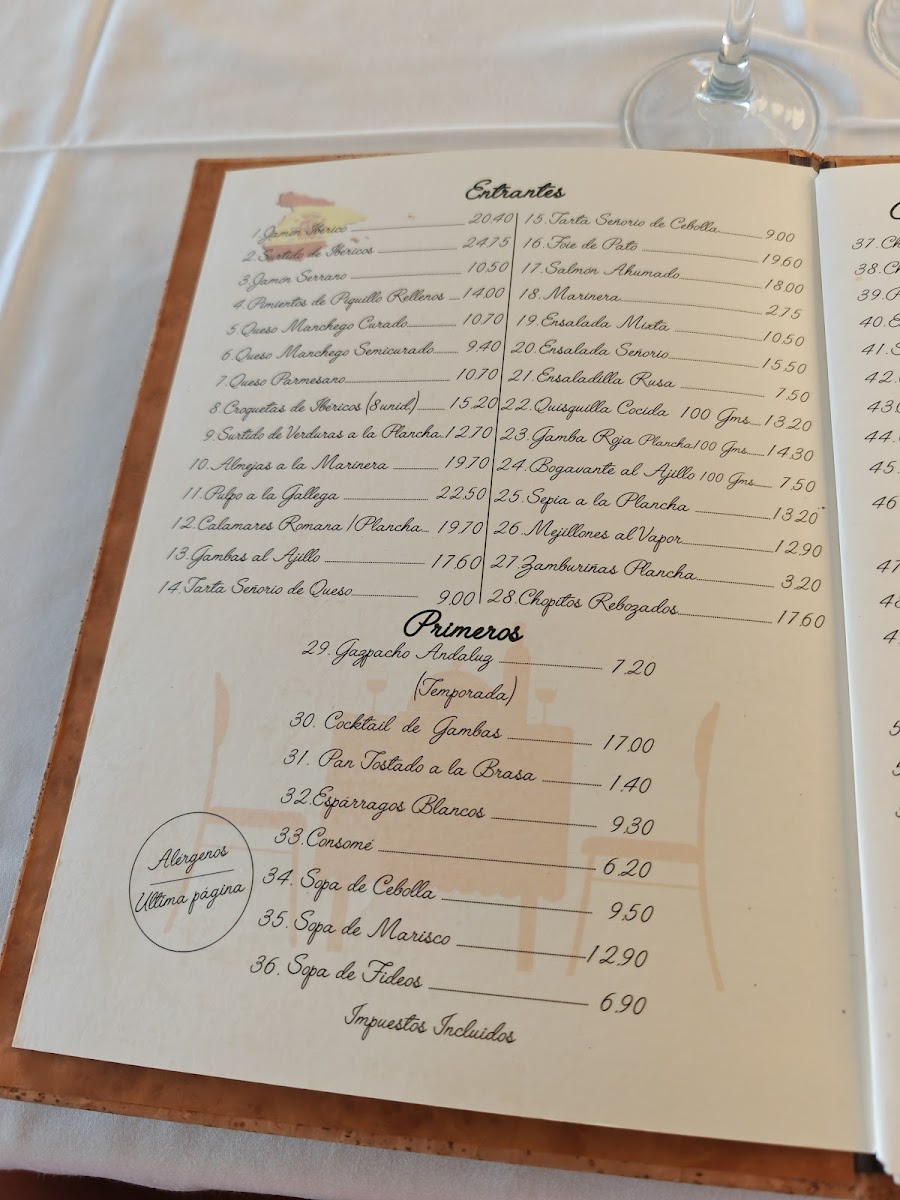 Entrantes
1.Jamón Ibérico 20.40
2.Surtido de Ibéricos 24.75
3.Jamón Serrano 10.50
4.Pimientos de Piquillo Rellenos 14.00
5.Queso Manchego Curado 10.70
6.Queso Manchego Semicurado 9.40
7.Queso Parmesano 10.70
8.Croquetas de Ibéricos (8unid) 15.20
9.Surtido de Verduras a la Plancha 12.70
10.Almejas a la Marinera 19.70
11.Pulpo a la Gallega 22.50
12.Calamares Romana / Plancha 19.70
13.Gambas al Ajillo 17.60
14.Tarta Señorio de Queso 9.00
15.Tarta Señorio de Cebolla 9.00
16.Foie de Pato 19.60
17.Salmón Ahumado 18.00
18.Marinera 2.75
19.Ensalada Mixta 10.50
20.Ensalada Señorio 15.50
21.Ensaladilla Rusa 7.50
22.Quisquilla Cocida 100 Gms 13.20
23.Gamba Roja Plancha100 Gms 14.30
24.Bogavante al Ajillo 100 Gms 7.50
25.Sepia a la Plancha 13.20
26.Mejillones al Vapor 12.90
27.Zamburiñas Plancha 3.20
28.Chopitos Rebozados 17.60
Primeros
29.Gazpacho Andaluz 7.20
(Temporada)
30. Cocktail de Gambas 17.00
31. Pan Tostado a la Brasa 1.40
32.Espárragos Blancos 9.30
33.Consomé 6.20
34. Sopa de Cebolla 9.50
35. Sopa de Marisco 12.90
36. Sopa de Fideos 6.90
Impuestos Incluidos
Alérgenos
Ultima página
37.Ch
38.C
39.
40.
41.
42.
43.
44.
45.
46
47